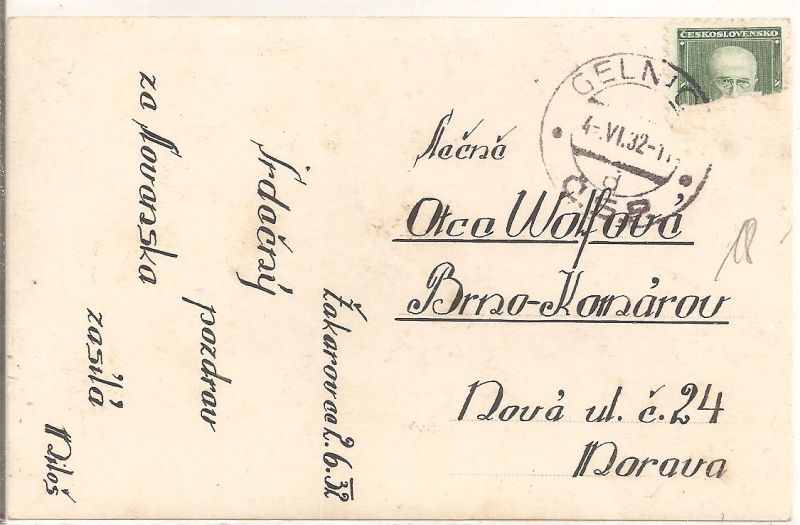 ČESKOSLOVENSKO
GELNIC
4.VI.32-1
d
Č.S.R.
Slečně
Wolfová
Brno-Komárov
Nová ul. č. 24
Morava
18
Žakarovce 2. 6. 32
Srdečný
pozdrav
ze Slovenska
zasílá
Miloš